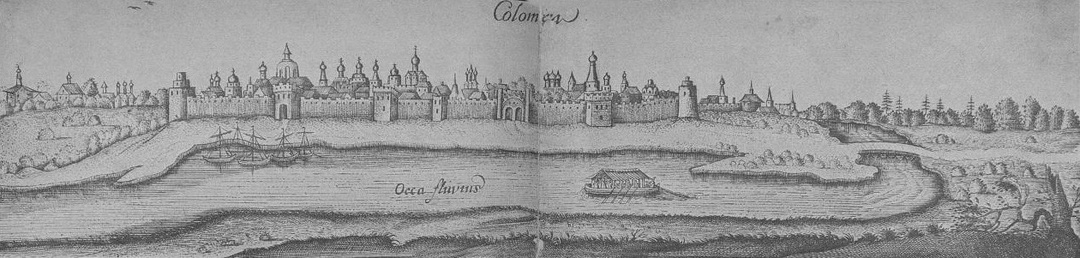 Colomen.
Occa fluvius